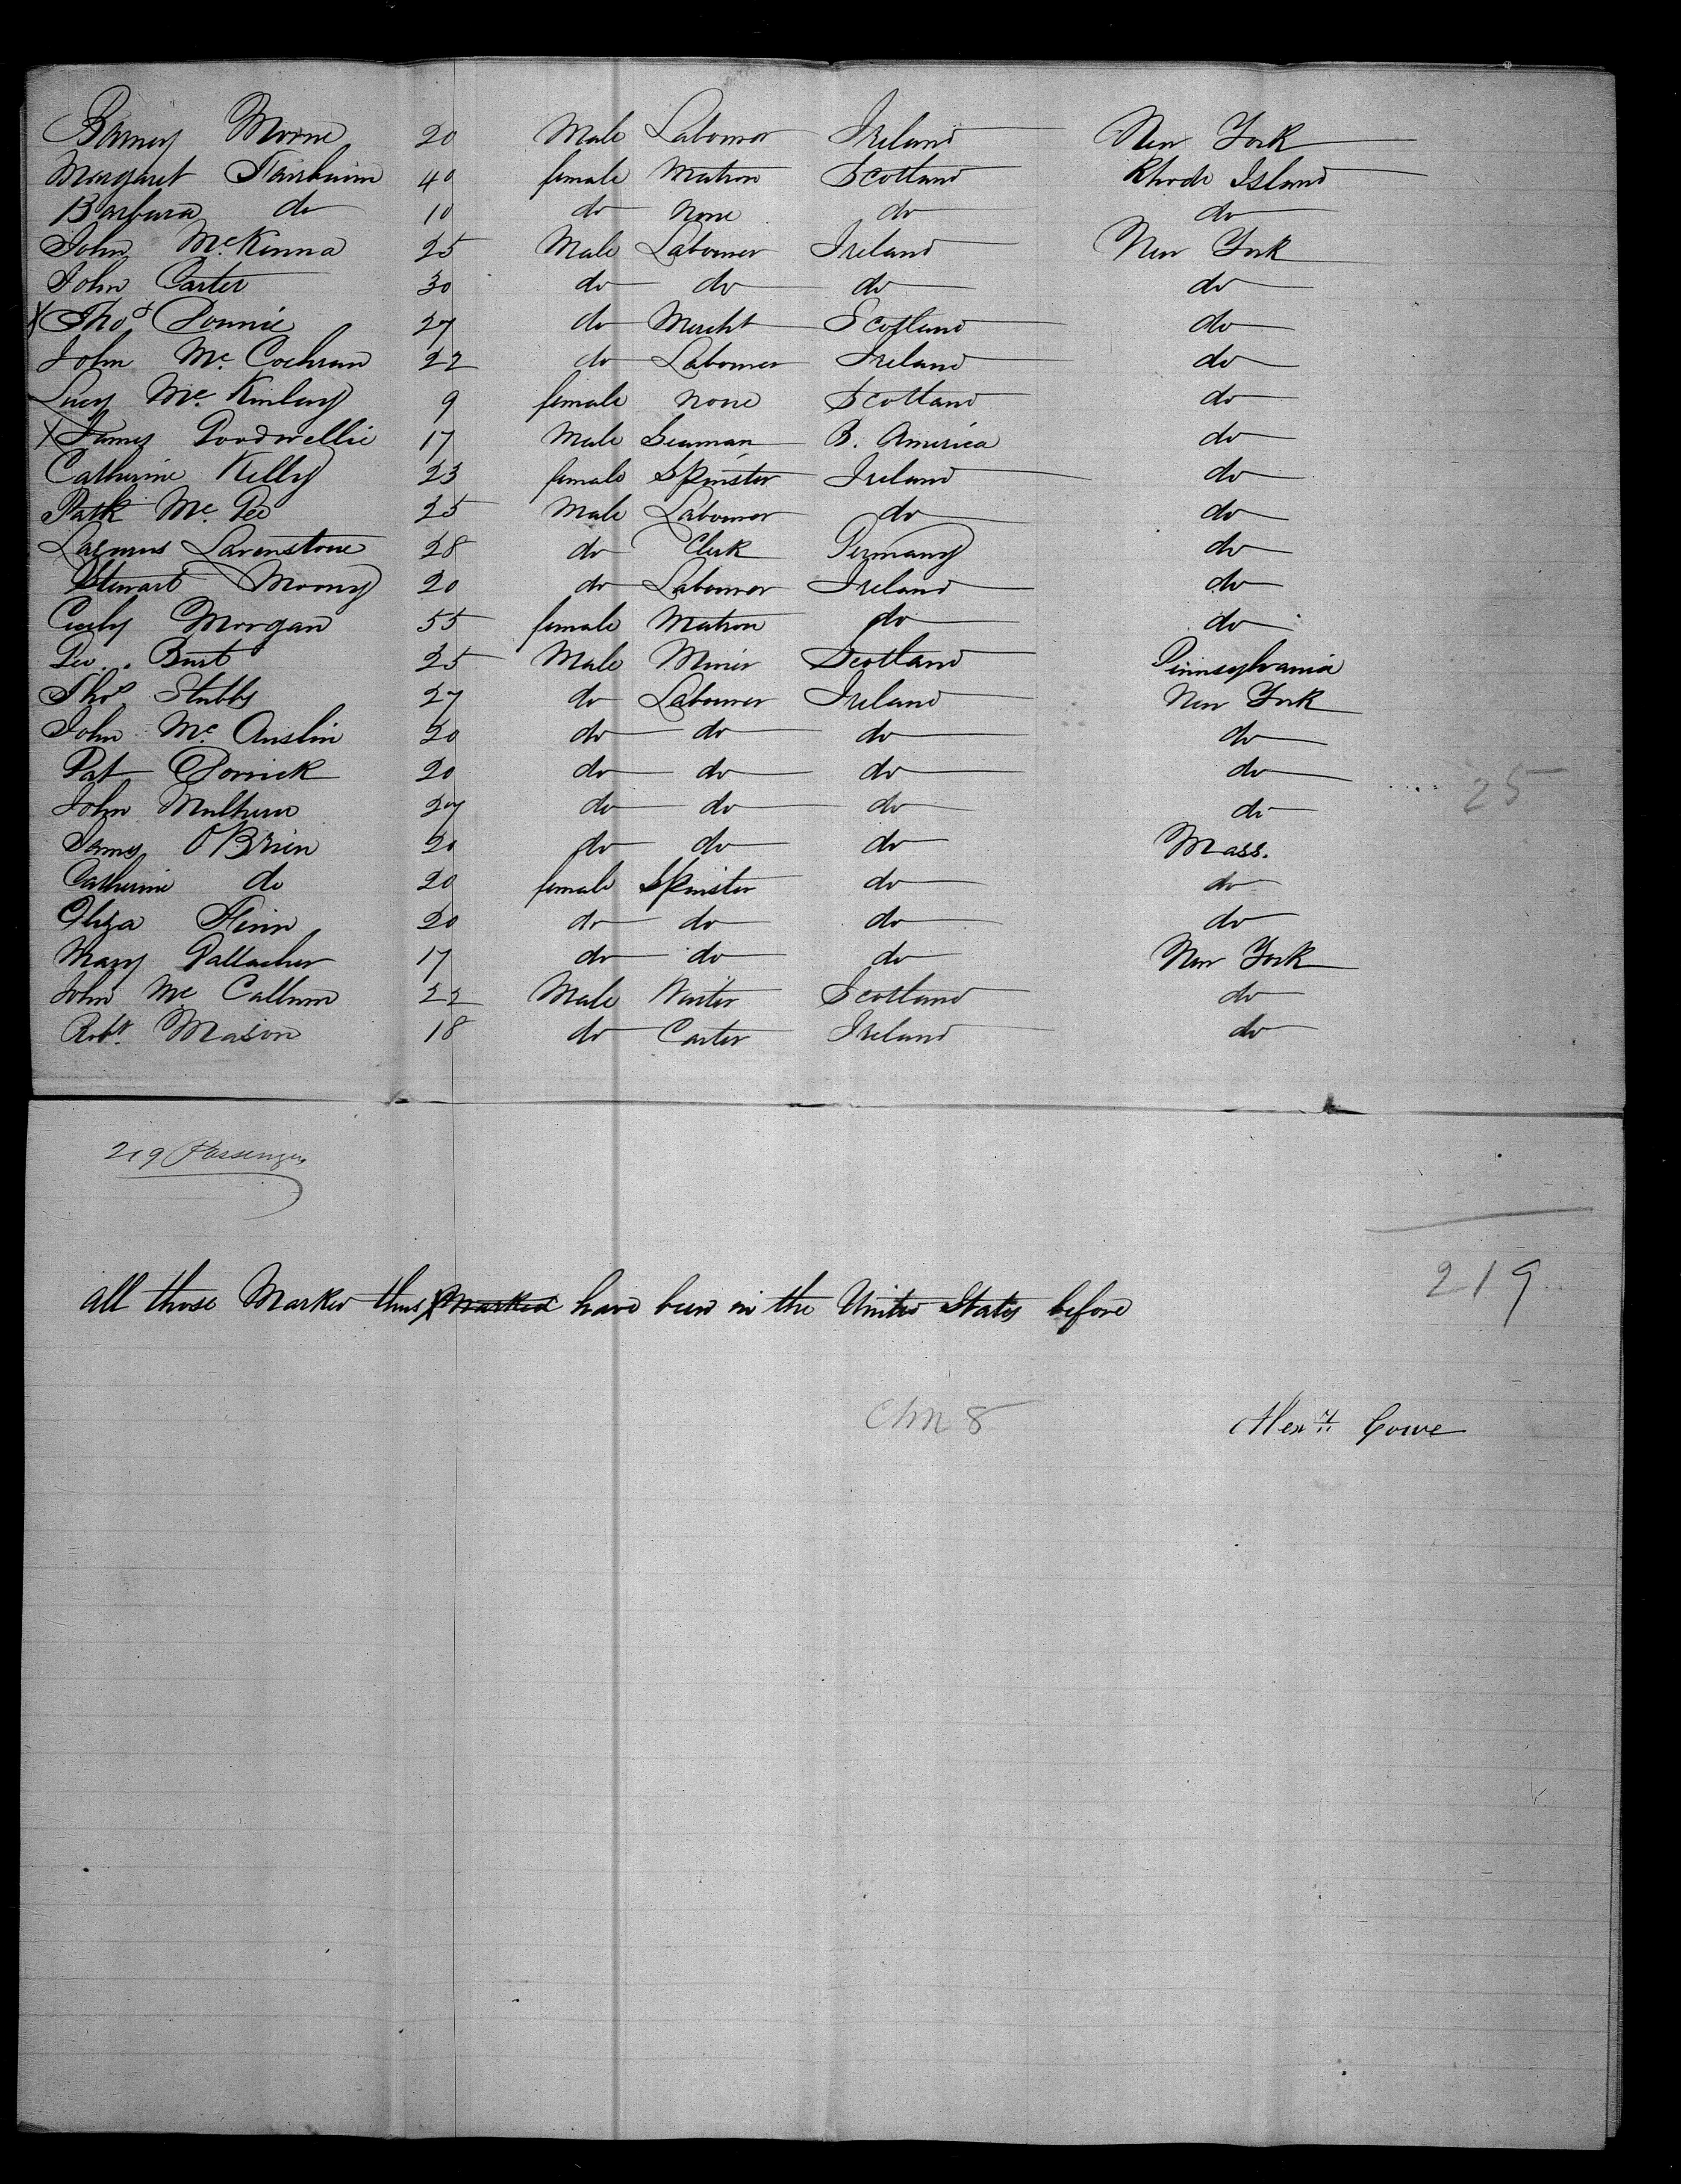 Barney Moore 20 Male Labourer Ireland New York
Margaret Fairbairn 40 female Matron Scotland Rhode Island
Barbara do 10 do none do do
John McKenna 25 Male Labourer Ireland New York
John Carter 30 do do do do
X Thos Downie 27 do Mercht Scotland do
John Mc Cochran 22 do Labourer Ireland do
Lucy Mc Kinlay 9 female none Scotland do
X James Goodwellie 17 Male Seaman B. America do
Catherine Kelly 23 female Spinster Ireland do
Patk Mc Gee 25 Male Labourer do do
Lazurus Lavenstone 28 do Clerk Germany do
Stewart Moony 20 do Labourer Ireland do
Cicely Morgan 55 female Matron do do
Geo. Burt 25 Male Miner Scotland Pennsylvania
Thos Stubbs 27 do Labourer Ireland New York
John Mc Auslin 20 do do do do
Pat Dorrick 20 do do do do 25
John Mulhern 27 do do do do
James O'Brien 20 do do do Mass.
Catherine do 20 female Spinster do do
Eliza Flinn 20 do do do do
Mary Gallacher 17 do do do New York
John Mc Callum 22 Male Waiter Scotland do
Robt. Mason 18 do Carter Ireland do
219 Passengers
219
all those Marked thus X marked have been in the United States before
Alexr Gowe